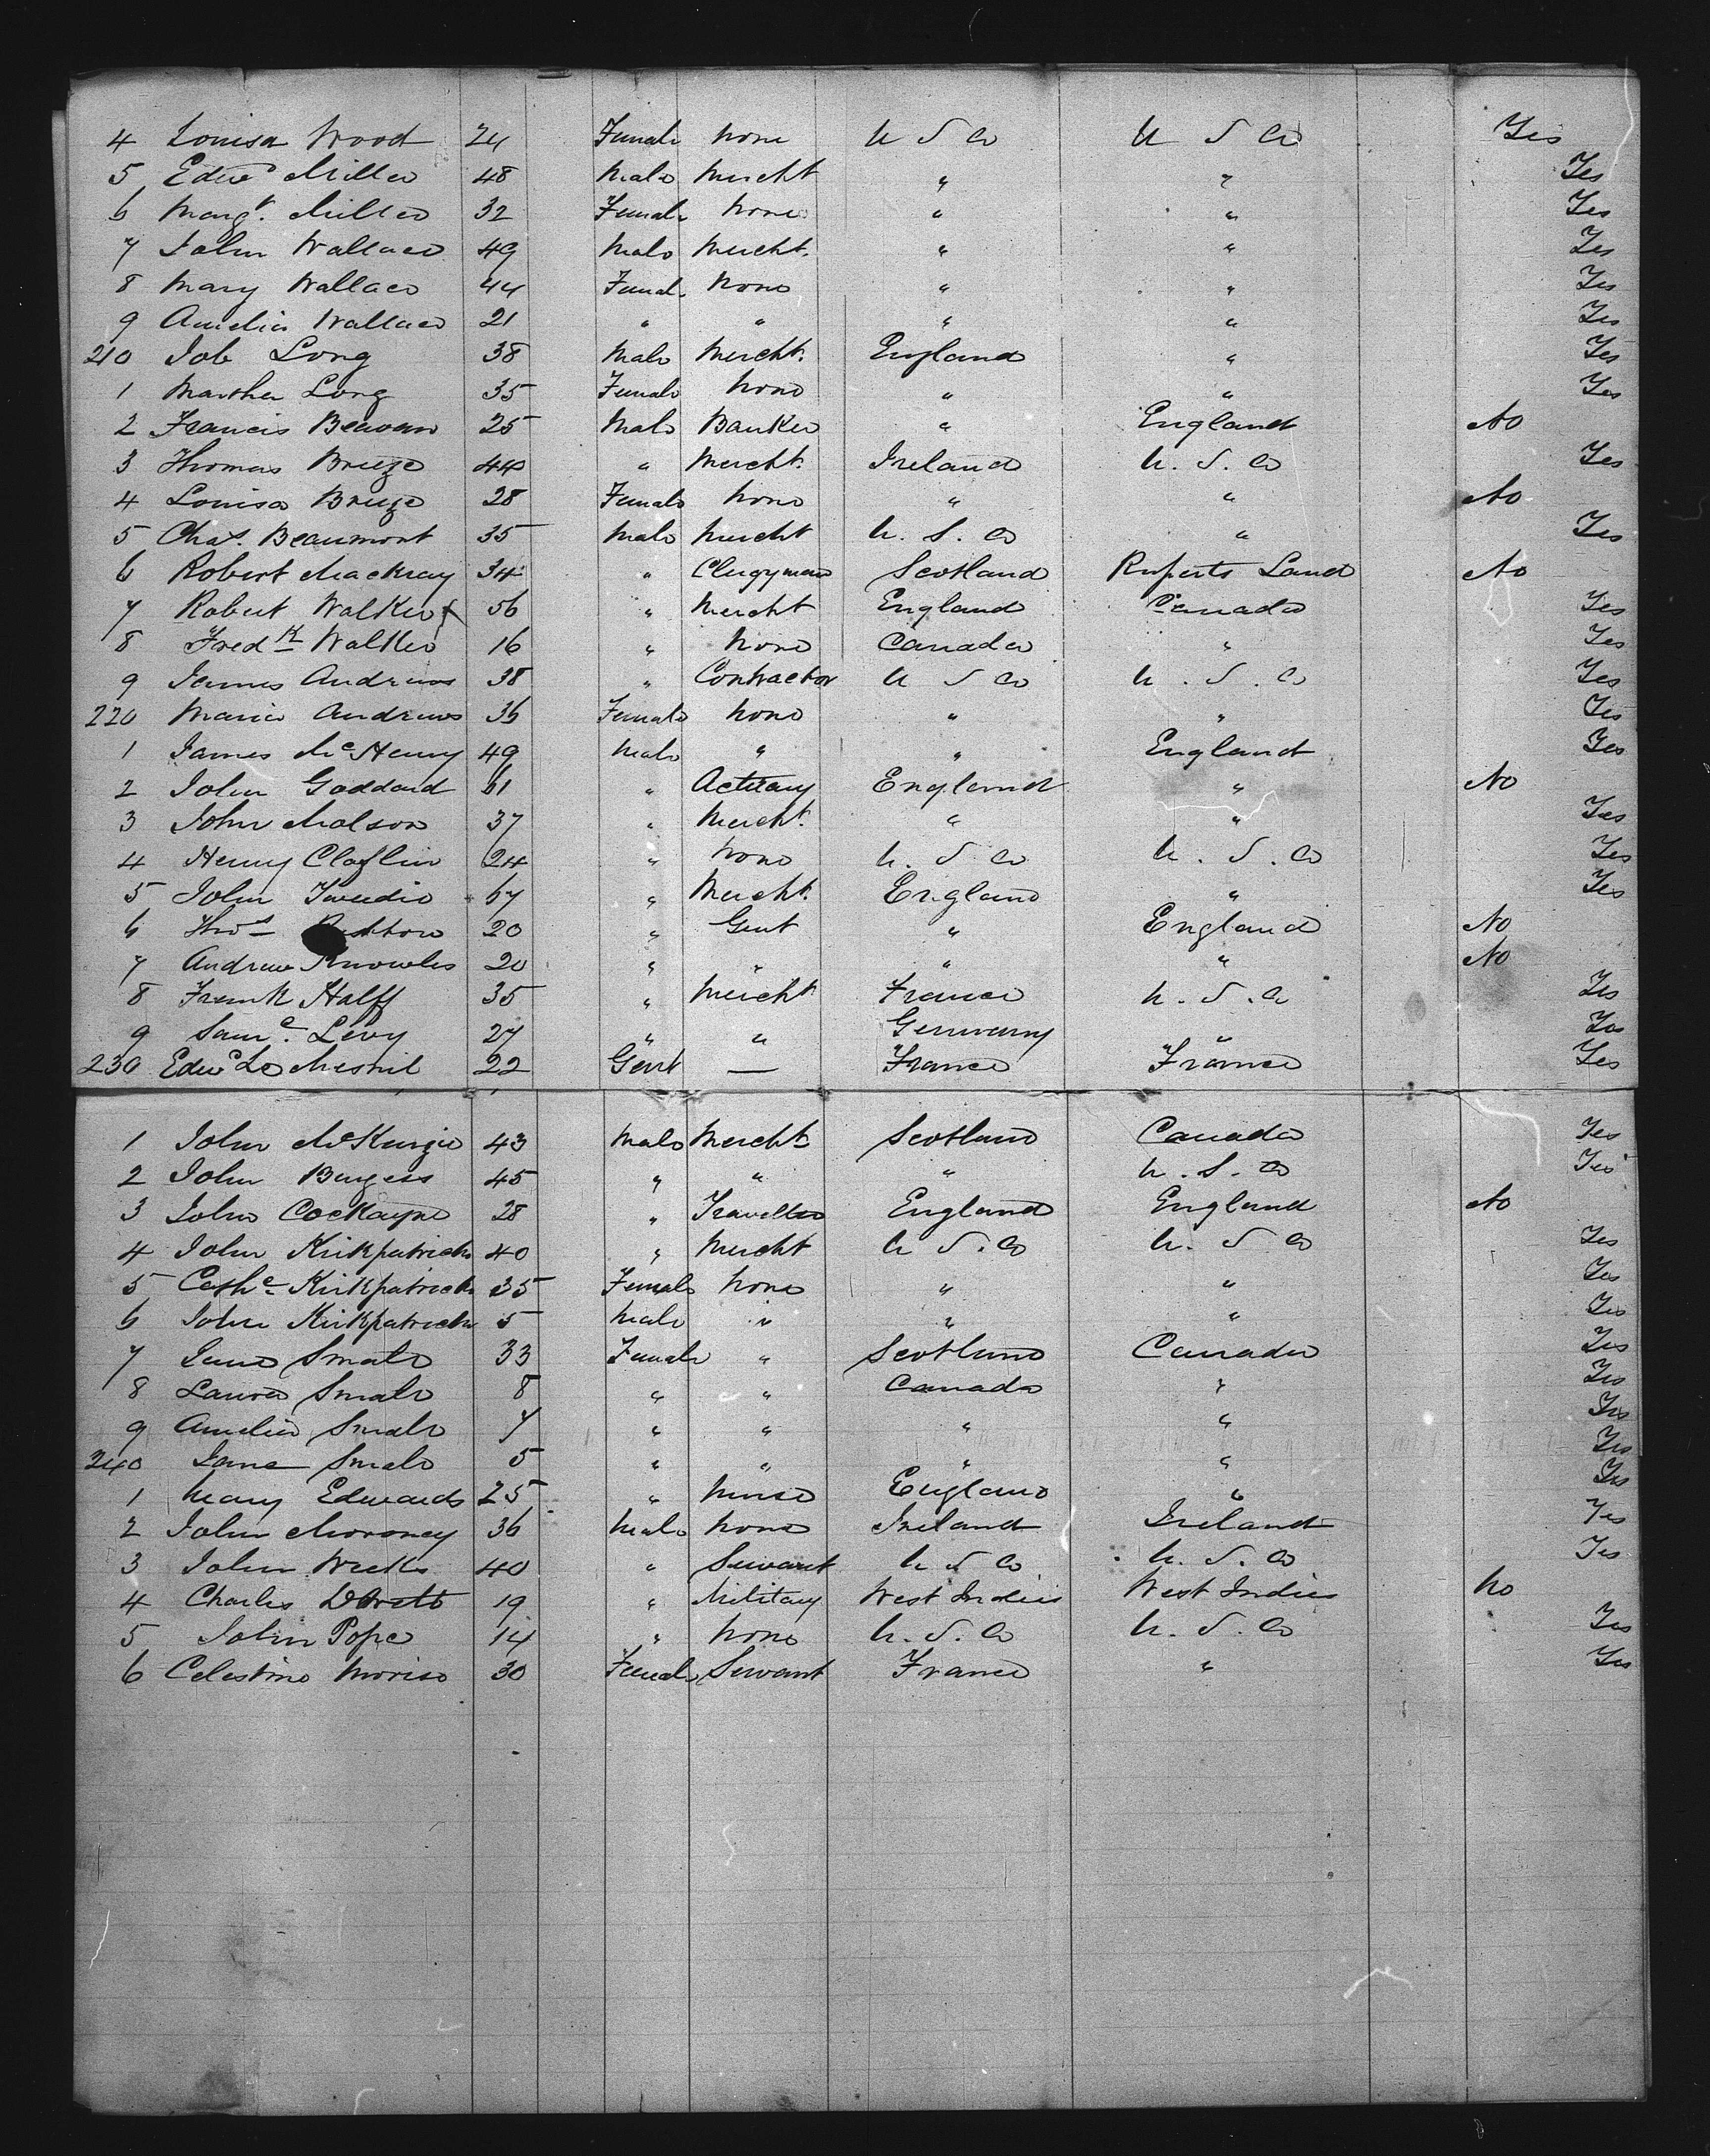 4 Louisa Wood 24 Female None U S A U S A Yes
5 Edwd Miller 48 Male Mercht " " Yes
6 Margt. Miller 32 Female None " " Yes
7 John Wallace 49 Male Mercht. " " Yes
8 Mary Wallace 44 Femal. None " " Yes
9 Amelia Wallace 21 " " " " Yes
210 Job Long 38 Male Mercht. England " Yes
1 Martha Long 35 Female None " " Yes
2 Francis Beavan 25 Male Banker " England No
3 Thomas Breeze 44 " Mercht. Ireland U. S. A Yes
4 Louisa Breeze 28 Female None " " No
5 Chas. Beaumont 35 Male Mercht U. S. A " Yes
6 Robert Mackray 34 " Clergyman Scotland Ruperts Land No
7 Robert Walker 56 " Mercht England Canada Yes
8 Fredk Walker 16 " None Canada " Yes
9 James Andrews 38 " Contractor U S A U. S. A Yes
220 Maria Andrews 36 Female None " " Yes
1 James McHenry 49 Male " " England Yes
2 John Goddard 61 " Actuary England " No
3 John Molson 37 " Mercht. " " Yes
4 Henry Claflin 24 " None U. S. A U. S. A Yes
5 John Tweedie 67 " Mercht. England " Yes
6 Thos 20 " Gent " England No
7 Andrew Knowles 20 " " " " No
8 Frank Halff 35 " Mercht France U. S. A Yes
9 Saml. Levy 27 " " Germany " Yes
230 Edwd Le Mesnil 22 Gent — France France Yes
1 John McKenzie 43 Male Mercht Scotland Canada Yes
2 John Burgess 45 " " " U. S. A Yes
3 John Cockayne 28 " Traveller England England No
4 John Kirkpatrick 40 " Mercht U S. A U. S A Yes
5 Cathe Kirkpatrick 35 Female None " " Yes
6 John Kirkpatrick 5 Male " " " Yes
7 Jane Smale 33 Female " Scotland Canada Yes
8 Laura Smale 8 " " Canada " Yes
9 Amelia Smale 7 " " " " Yes
240 Jane Smale 5 " " " " Yes
1 Mary Edwards 25 " Nurse England " Yes
2 John Moroney 36 Male None Ireland Ireland Yes
3 John Weeks 40 " Servant U S A U. S. A Yes
4 Charles 19 " Military West Indies West Indies No
5 John Pope 14 " None U. S. A U. S. A Yes
6 Celestine Morise 30 Female Servant France " Yes